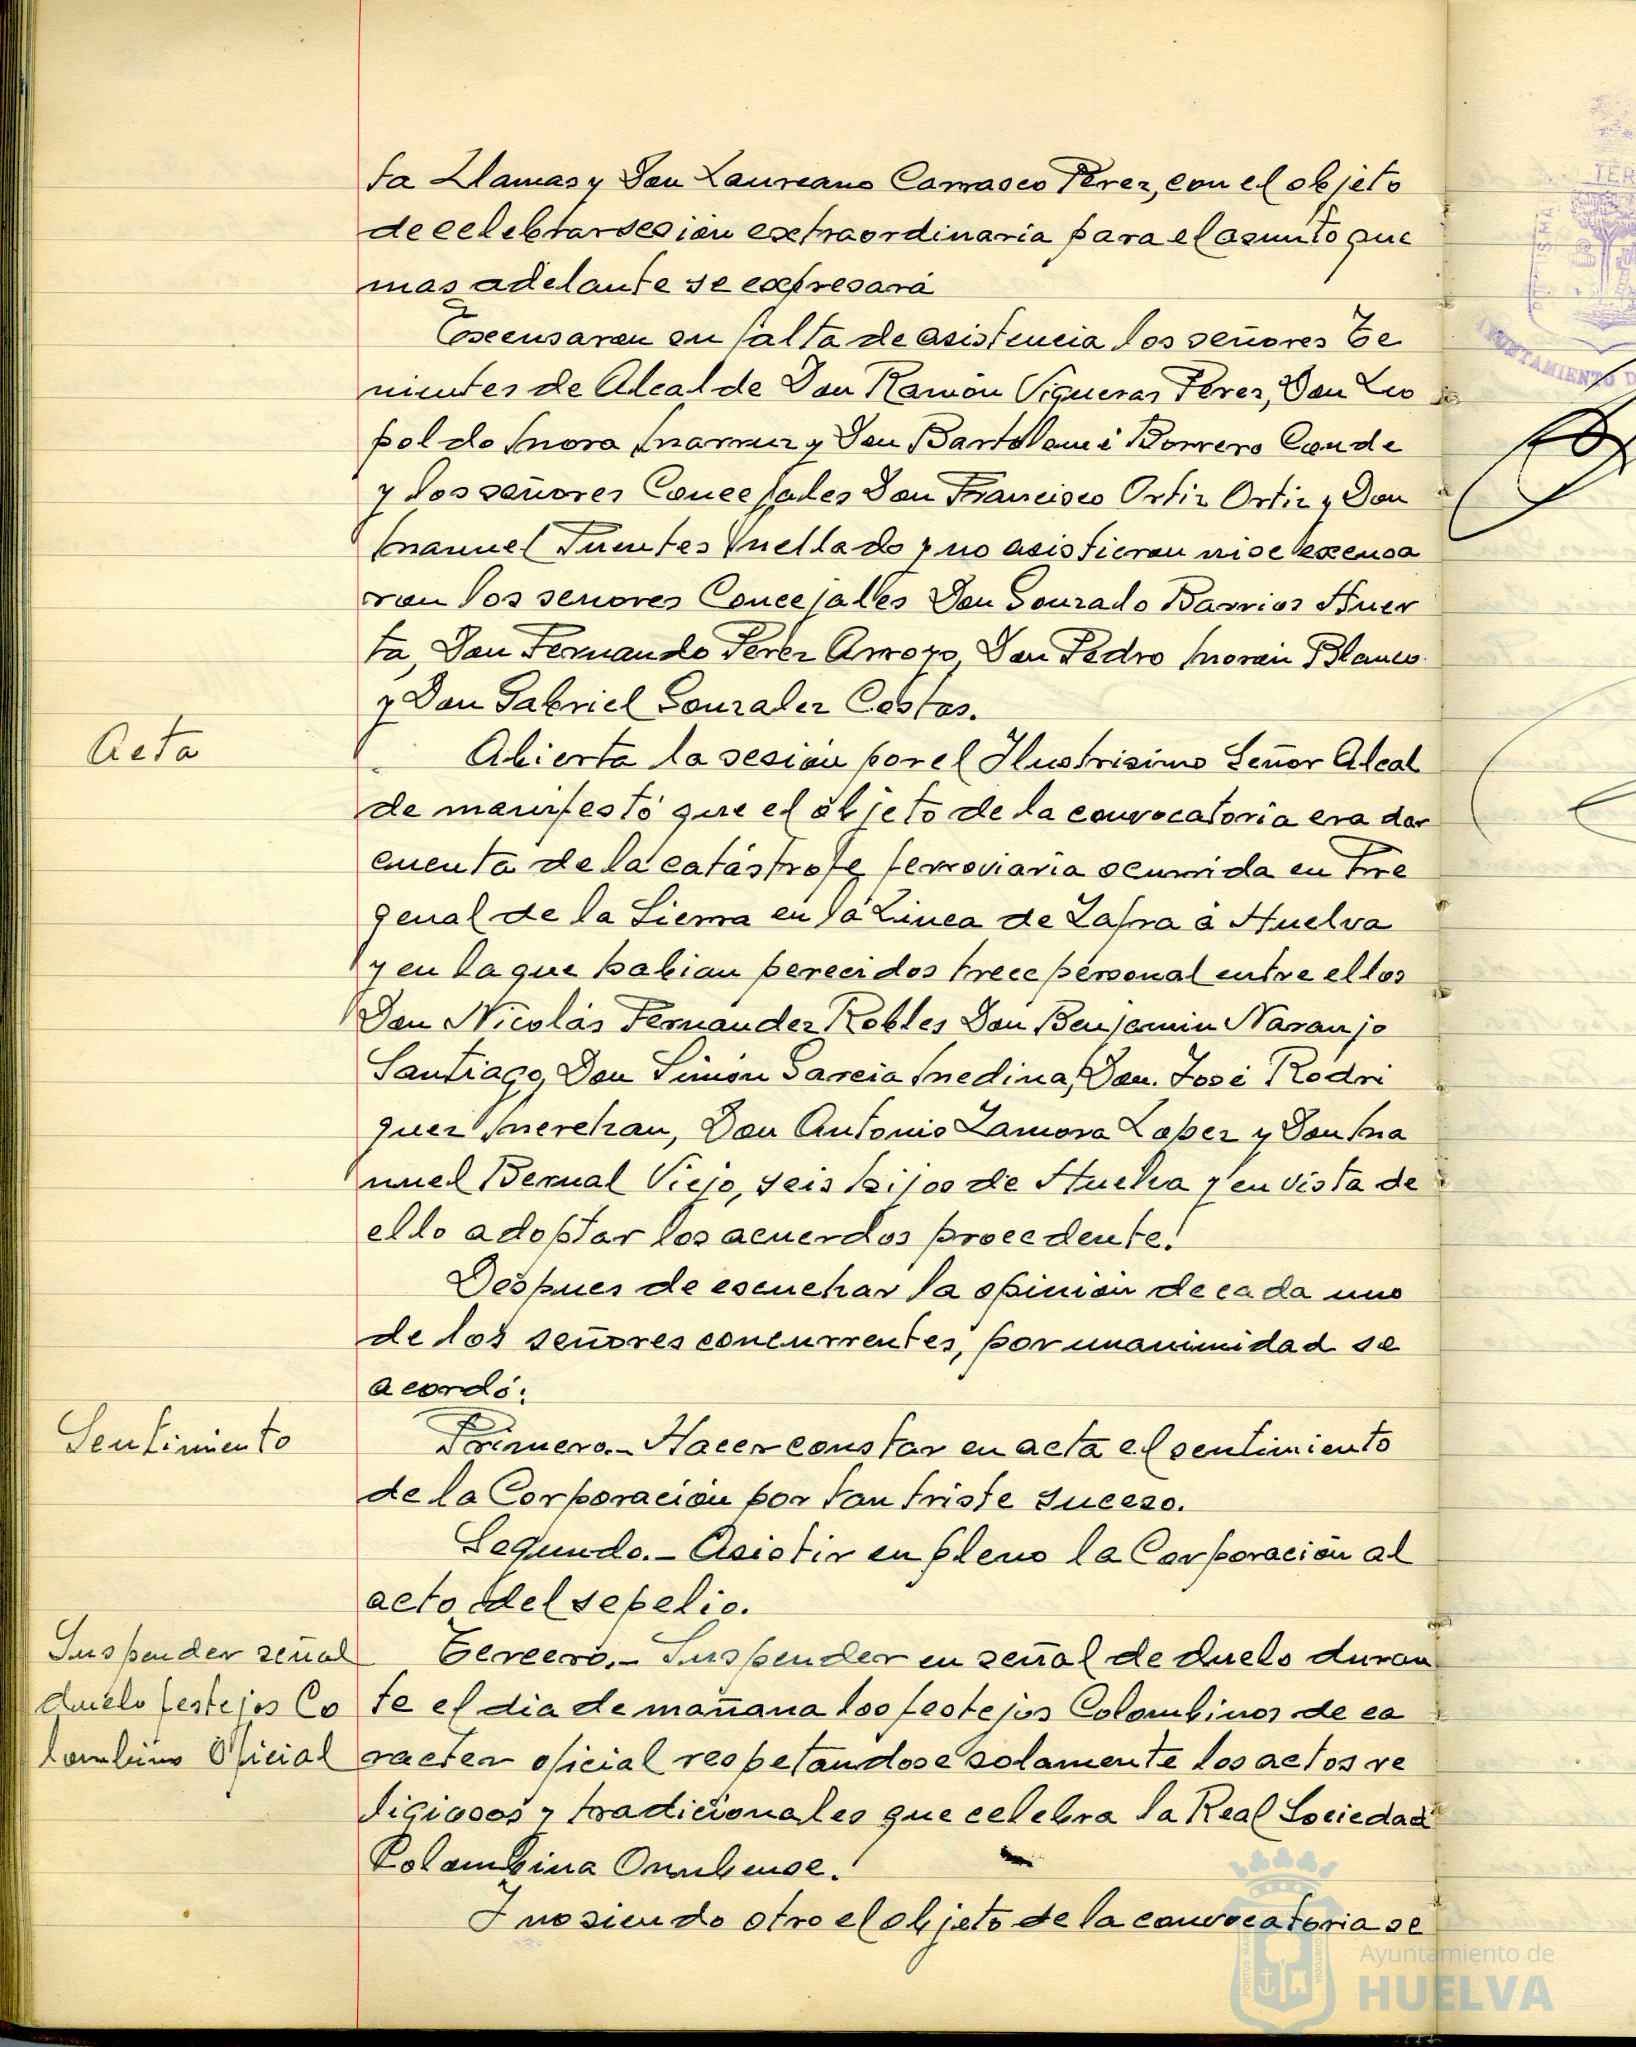 ta Llamas y Don Laureano Carrasco Perez, con el objeto
de celebrar sesión extraordinaria para el asunto que
mas adelante se expresará
Excusaron su falta de asistencia los señores Te
nientes de Alcalde Don Ramón Vigueras Perez, Don Leo
poldo Mora y Don Bartolomé Borrero Conde
y los señores Concejales Don Francisco Ortiz Ortiz y Don
Manuel Fuentes Mellado y no asistieron ni se excusa
ron los señores Concejales Don Gonzalo Barrios Huer
ta, Don Fernando Perez Arroyo, Don Pedro Moron Blanco
y Don Gabriel Gonzalez Costas.
Acta
Abierta la sesión por el Ilustrisimo Señor Alcal
de manifestó que el objeto de la convocatoria era dar
cuenta de la catástrofe ferroviaria ocurrida en Fre
genal de la Sierra en la Linea de Zafra á Huelva
y en la que habian perecidos trece personal entre ellos
Don Nicolás Fernandez Robles Don Benjamin Naranjo
Santiago, Don Simón Garcia Medina, Don. José Rodri
guez Merchan, Don Antonio Zamora Lopez y Don Ma
nuel Bernal Viejo, seis hijos de Huelva y en vista de
ello adoptar los acuerdos procedente!
Despues de escuchar la opinión de cada uno
de los señores concurrentes, por unanimidad se
acordó:
Sentimiento
Primero.- Hacer constar en acta el sentimiento
de la Corporación por tan triste suceso.
Segundo.- Asistir en pleno la Corporación al
acto del sepelio.
Suspender señal
duelo festejos Co
lombino Oficial
Tercero.- Suspender en señal de duelo duran
te el dia de mañana los festejos Colombinos de ca
racter oficial respetandose solamente los actos re
ligiosos y tradicionales que celebra la Real Sociedad
Colombina Onubense.
Y no siendo otro el objeto de la convocatoria se
AYUNTAMIENTO D
Ayuntamiento de
HUELVA